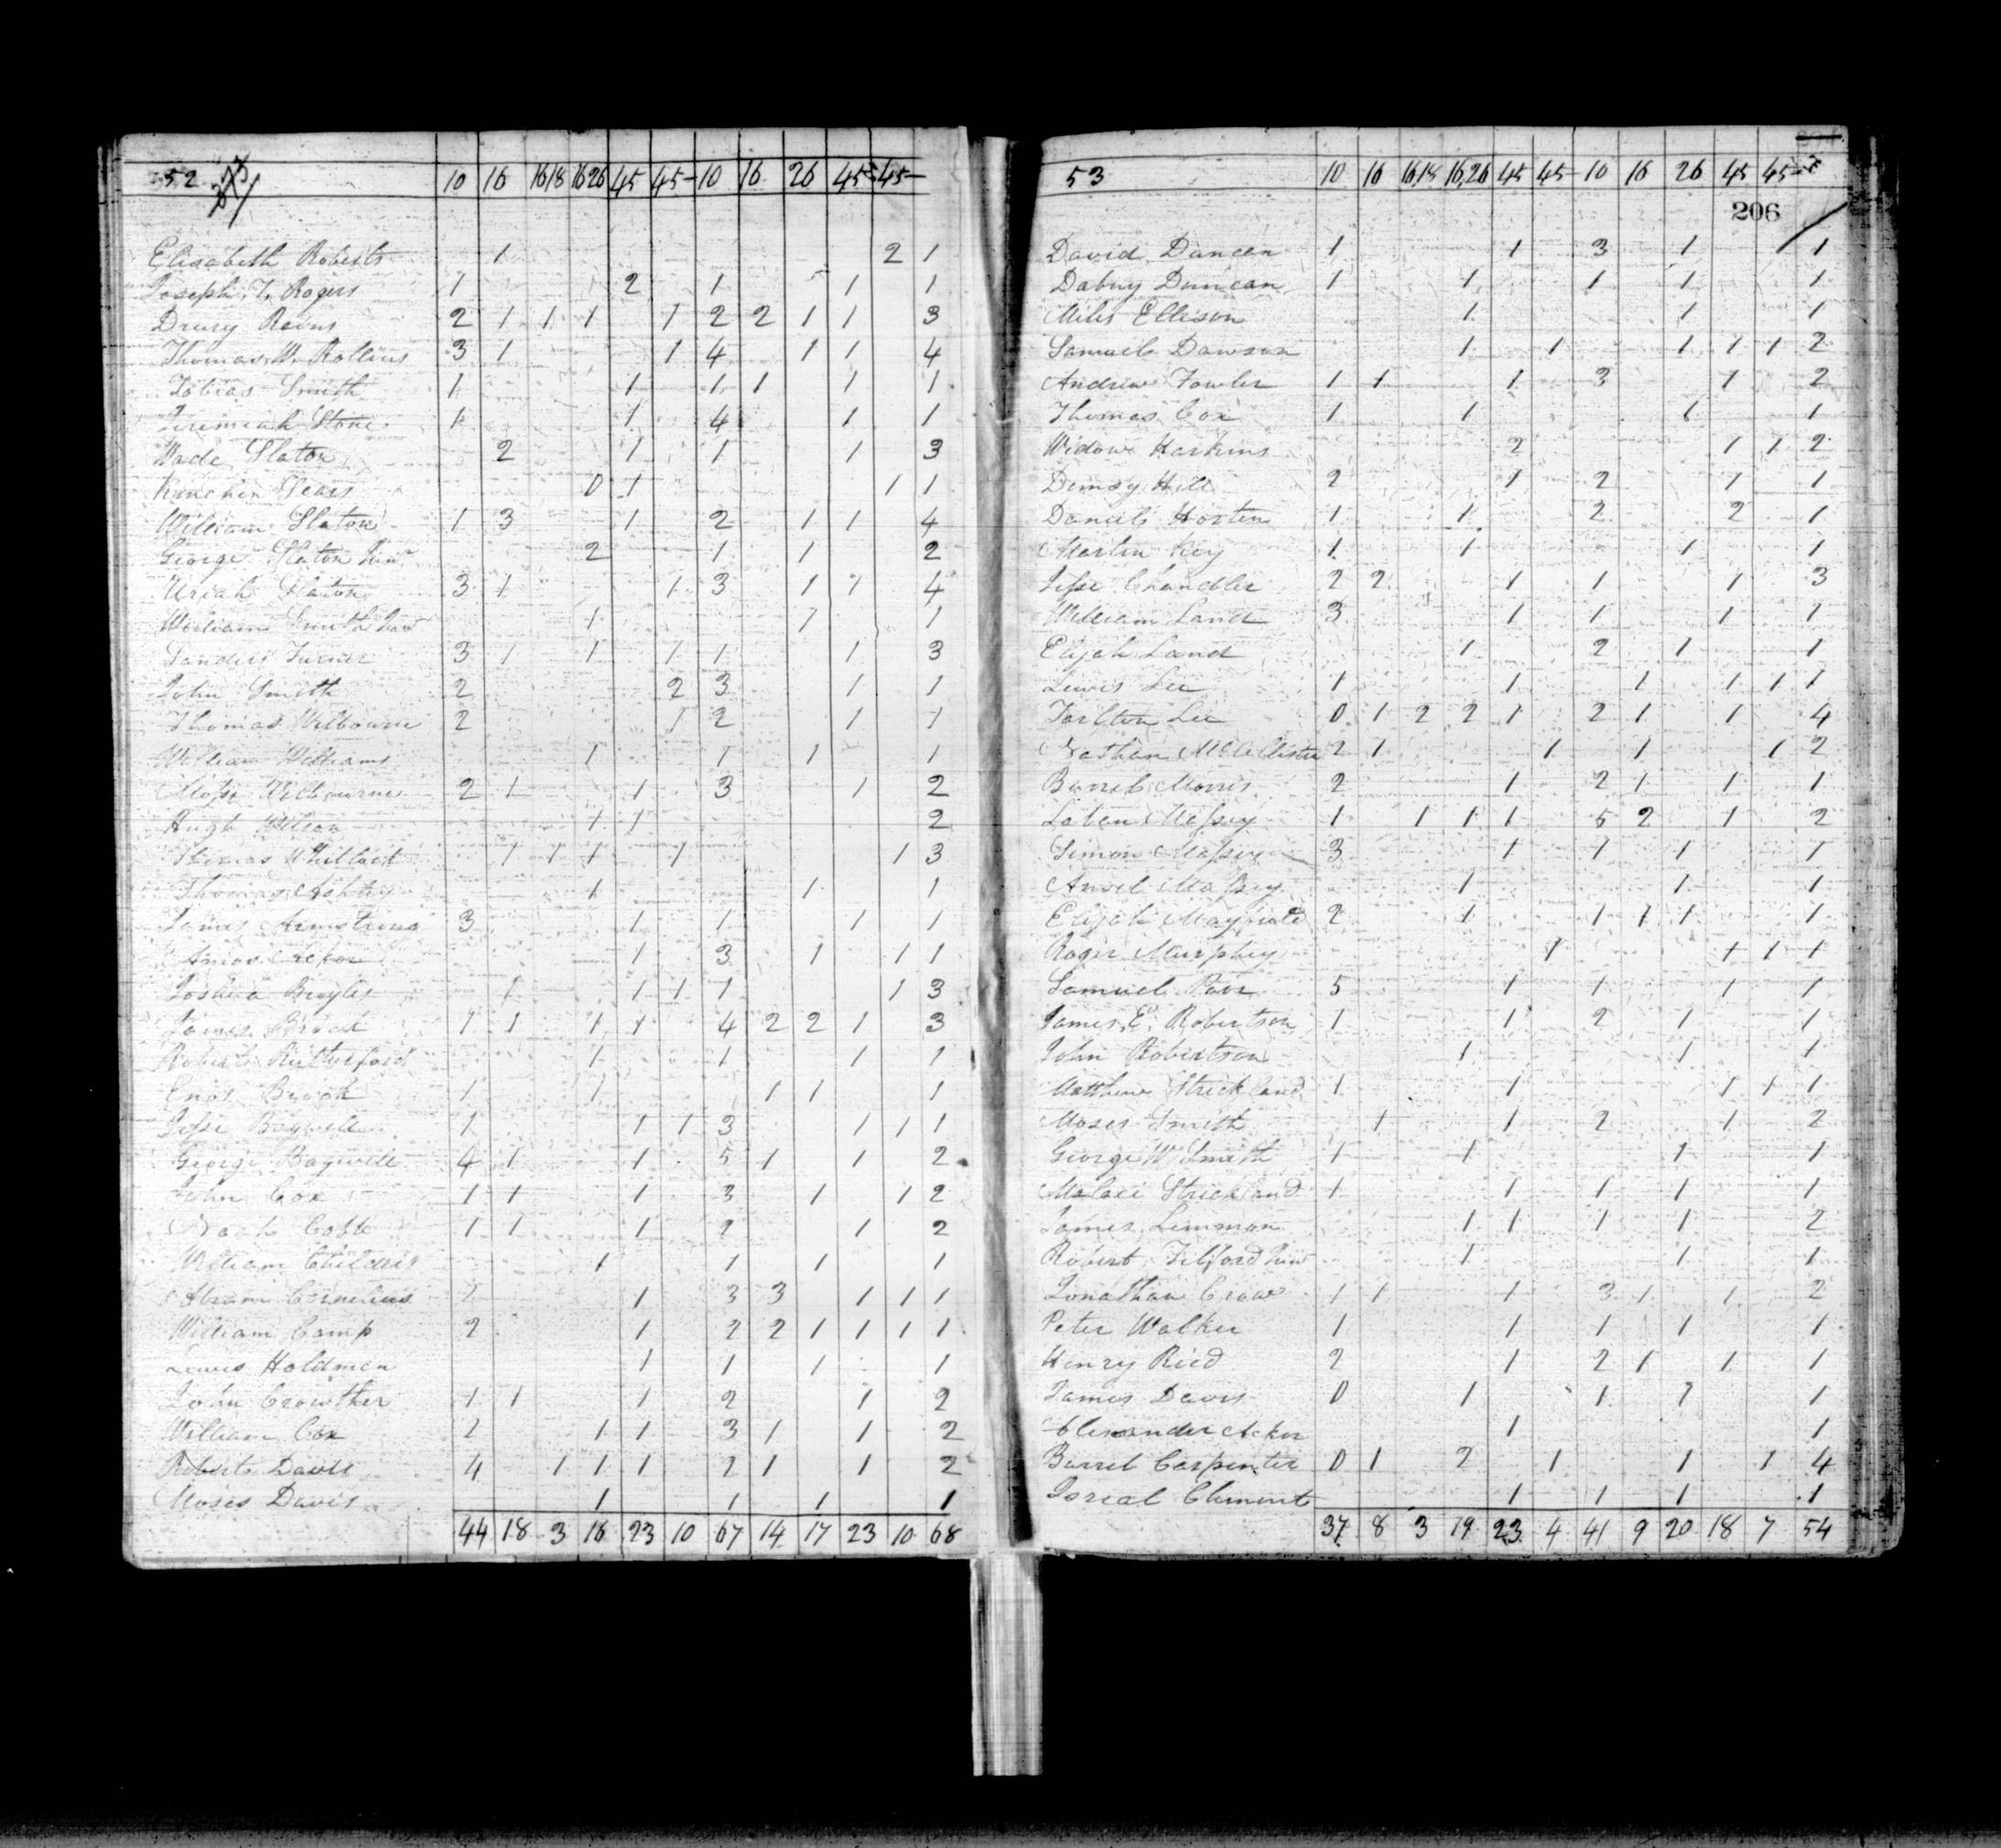 52 10 16 16 18 16 26 45 45 10 16 26 45 45
Elizabeth Roberts 1 2 1
Joseph T. Rogers 1 2 1 1 1
Drury Revis 2 1 1 1 1 2 2 1 1 3
Thomas W. Rollins 3 1 1 4 1 1 4
Tobias Smith 1 1 1 1 1 1
Jeremiah Stone 1 1 4 1 1
Wade Slaton 2 1 1 1 3
0 1 1 1
William Slaton 1 3 1 2 1 1 4
George Slaton 2 1 1 2
Uriah Slaton 3 1 1 3 1 1 4
William Smith 1 1 1
Sanders Turner 3 1 1 1 1 1 3
John Smith 2 2 3 1 1
Thomas Welbourn 2 1 2 1 1
William Williams 1 1 1 1
Welbourne 2 1 1 3 1 2
Hugh Wilson 1 1 2
Thomas 1 1 1 1 1 3
Thomas 1 1 1
James Armstrong 3 1 1 1 1
Amos Acker 1 3 1 1 1
Joshua 1 1 1 1 1 3
James Brock 1 1 1 1 4 2 2 1 3
Robert Rutherford 1 1 1 1
Enos Brook 1 1 1 1 1
Jesse Bagwell 1 1 1 3 1 1 1
George Bagwell 4 1 1 5 1 1 2
John Cox 1 1 1 3 1 1 2
Noah Cobb 1 1 1 2 1 2
William Childris 1 1 1 1
Abram Cornelius 2 1 3 3 1 1 1
William Camp 2 1 2 2 1 1 1 1
Lewis Holdman 1 1 1 1
John Crowther 1 1 1 2 1 2
William Cox 2 1 1 3 1 1 2
Robert Davis 4 1 1 1 2 1 1 2
Moses Davis 1 1 1 1
44 18 3 16 23 10 67 14 17 23 10 68
53 10 16 16,18 16,26 45 45 10 16 26 45 45
206
David Duncan 1 1 3 1 1
Dabny Duncan 1 1 1 1 1
Miles Ellison 1 1 1
Samuel Dawson 1 1 1 1 1 2
Andrew Fowler 1 1 1 3 1 2
Thomas Cox 1 1 1 1
Widow Harkins 2 1 1 2
Dempsy Hill 2 1 2 1 1
Daniel Horton 1 1 2 2 1
Martin Key 1 1 1 1
Jesse Chandler 2 2 1 1 1 3
William Land 3 1 1 1 1
Elijah Land 1 2 1 1
Lewis Lee 1 1 1 1 1 1
Tarlton Lee 0 1 2 2 1 2 1 1 4
Nathan McAllister 2 1 1 1 1 2
Burrel Morris 2 1 2 1 1 1
Laban Massey 1 1 1 1 5 2 1 2
Simon Massey 3 1 1 1 1
Ansel Massey 1 1 1
Elijah Mayfield 2 1 1 1 1 1
Roger Murphey 1 1 1 1
Samuel Parr 5 1 1 1 1
James E. Robertson 1 1 2 1 1
John Robertson 1 1 1
Matthew Strickland 1 1 1 1 1
Moses Smith 1 1 2 1 2
George W Smith 1 1 1 1
Malaci Strickland 1 1 1 1 1
James Lemmon 1 1 1 1 2
Robert Telford 1 1 1
Jonathan Crow 1 1 1 3 1 1 2
Peter Walker 1 1 1 1 1
Henry Ried 2 1 2 1 1 1
James Davis 0 1 1 1 1
Alexander Acker 1 1
Burrel Carpenter 0 1 2 1 1 1 4
Isreal Clement 1 1 1 1
37 8 3 19 23 4 41 9 20 18 7 54